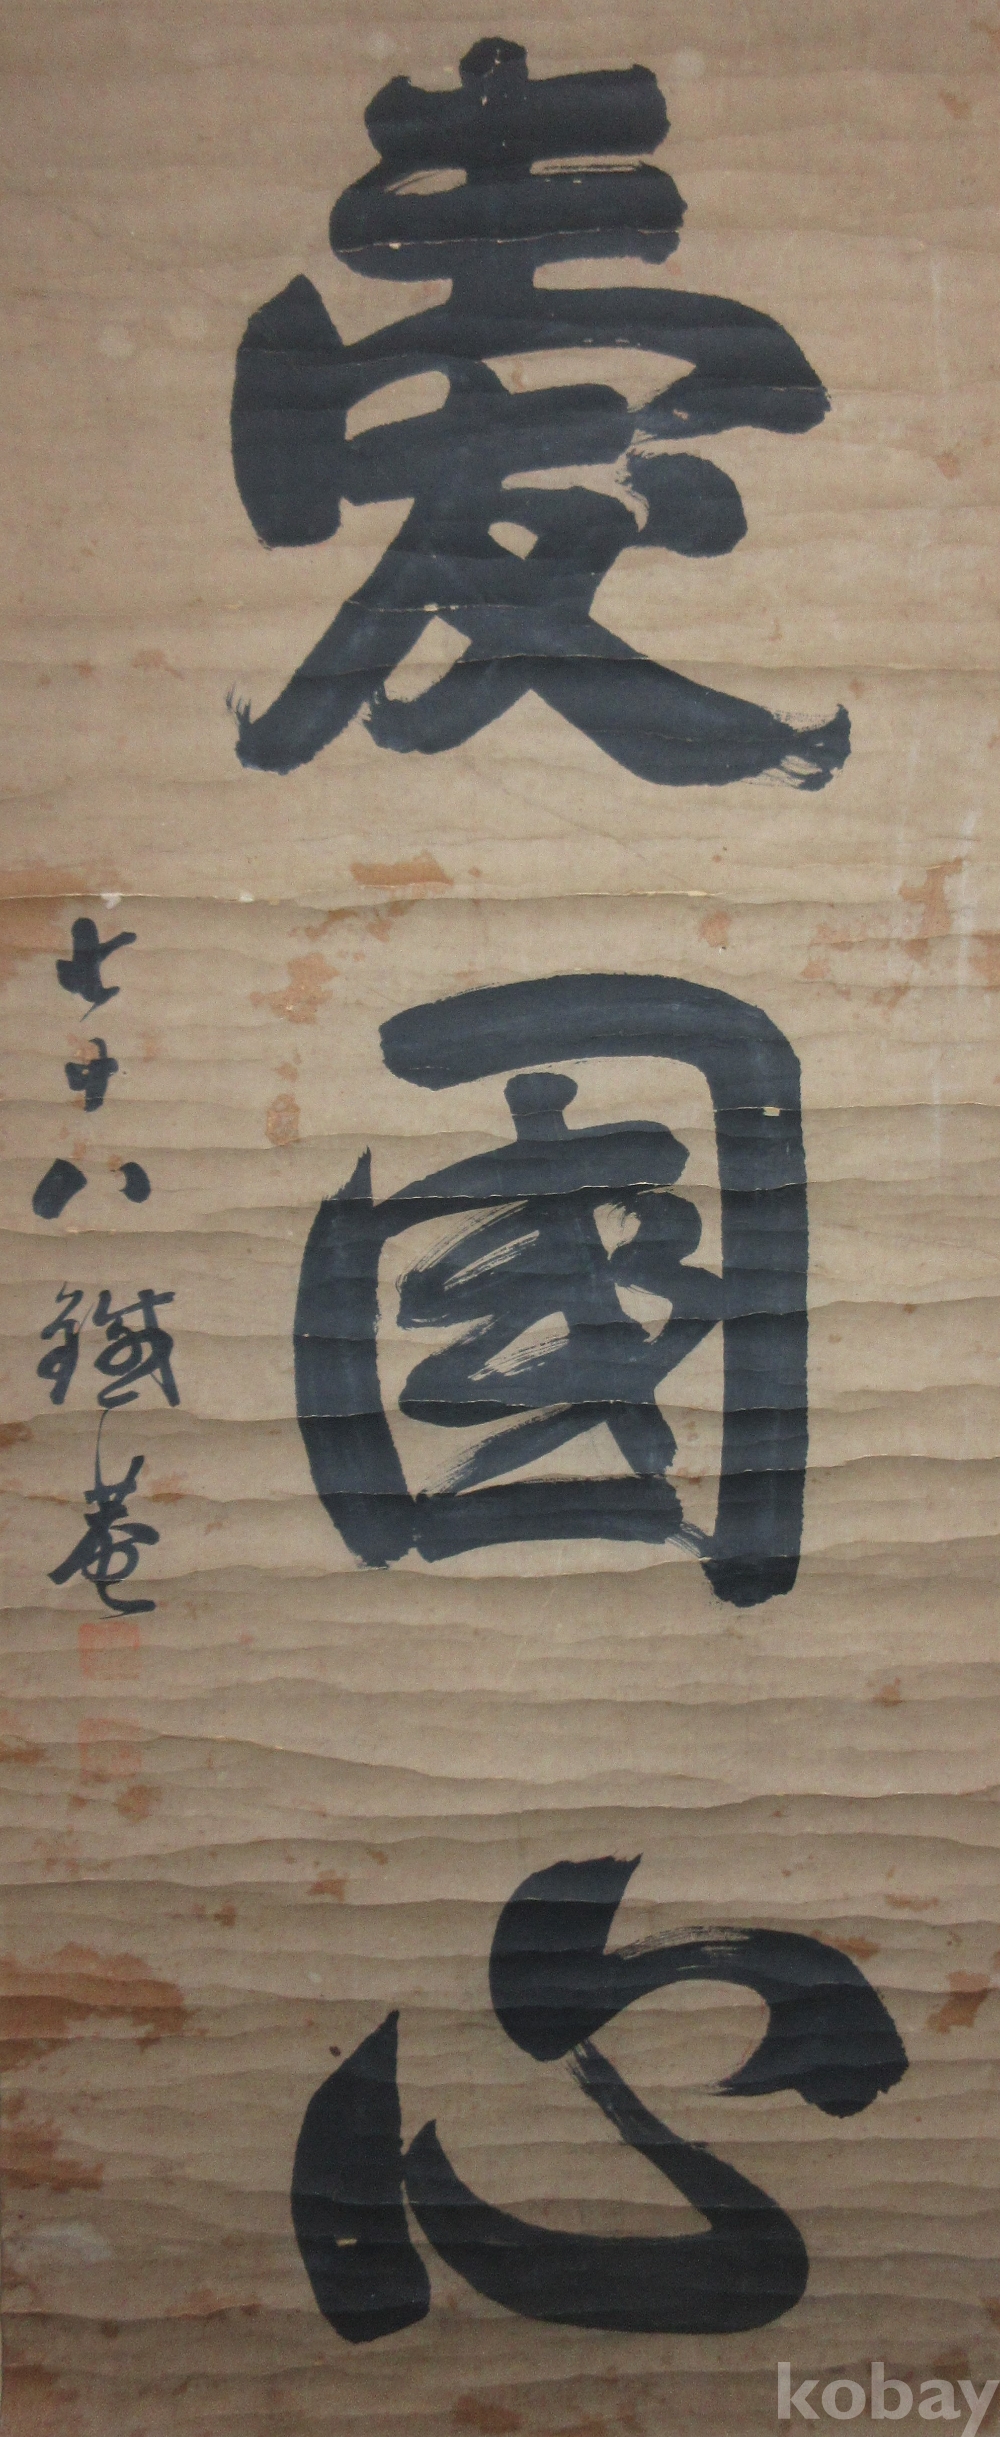 愛國心
七十八 鐵菴
kobay